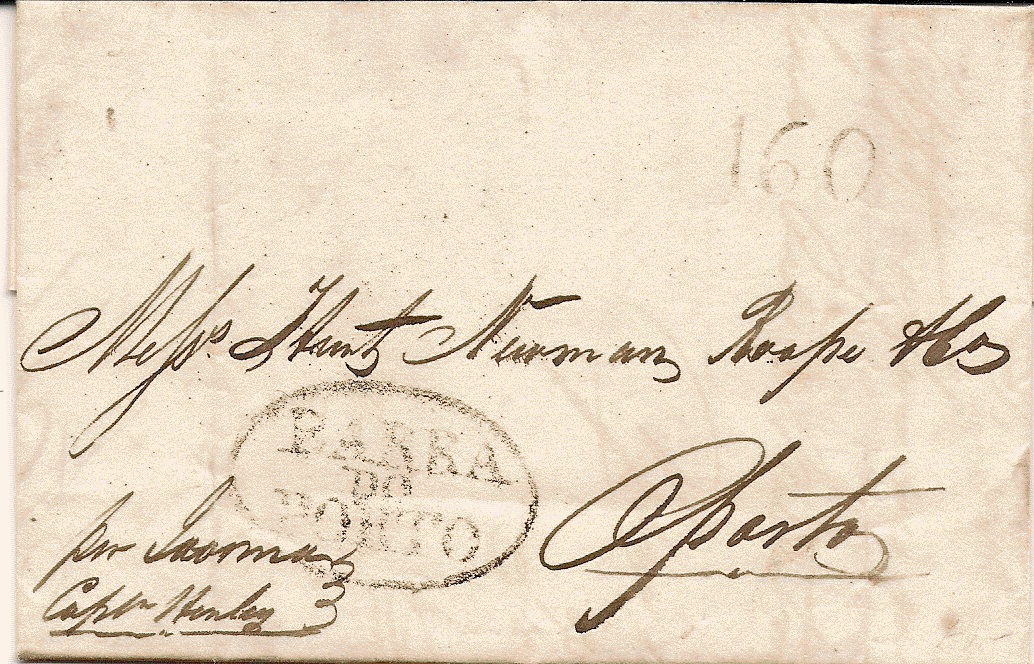 160
Messrs Hunt Newman Roope & Co
BARRA
DO
PORTO
Oporto
per
Captn Henley